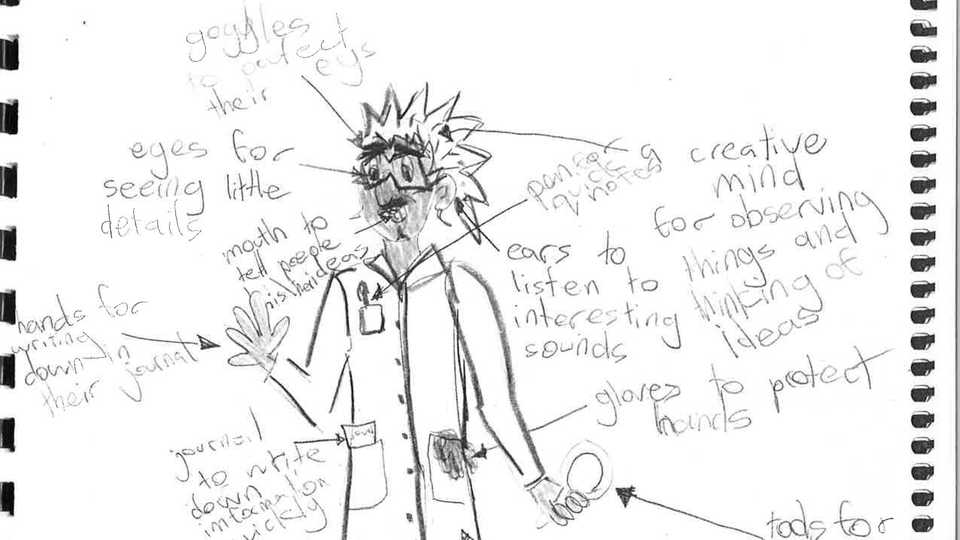 goggles
to protect
their eys
eyes for
seeing little
details
mouth to
tell people
his ideas
pan for
quick
notes
a creative
mind
for observing
things and
thinking of
ideas
ears to
listen to
interesting
sounds
hands for
writing
down in
their journal
journal
to write
down
quickly
gloves to protect
hands
tools for